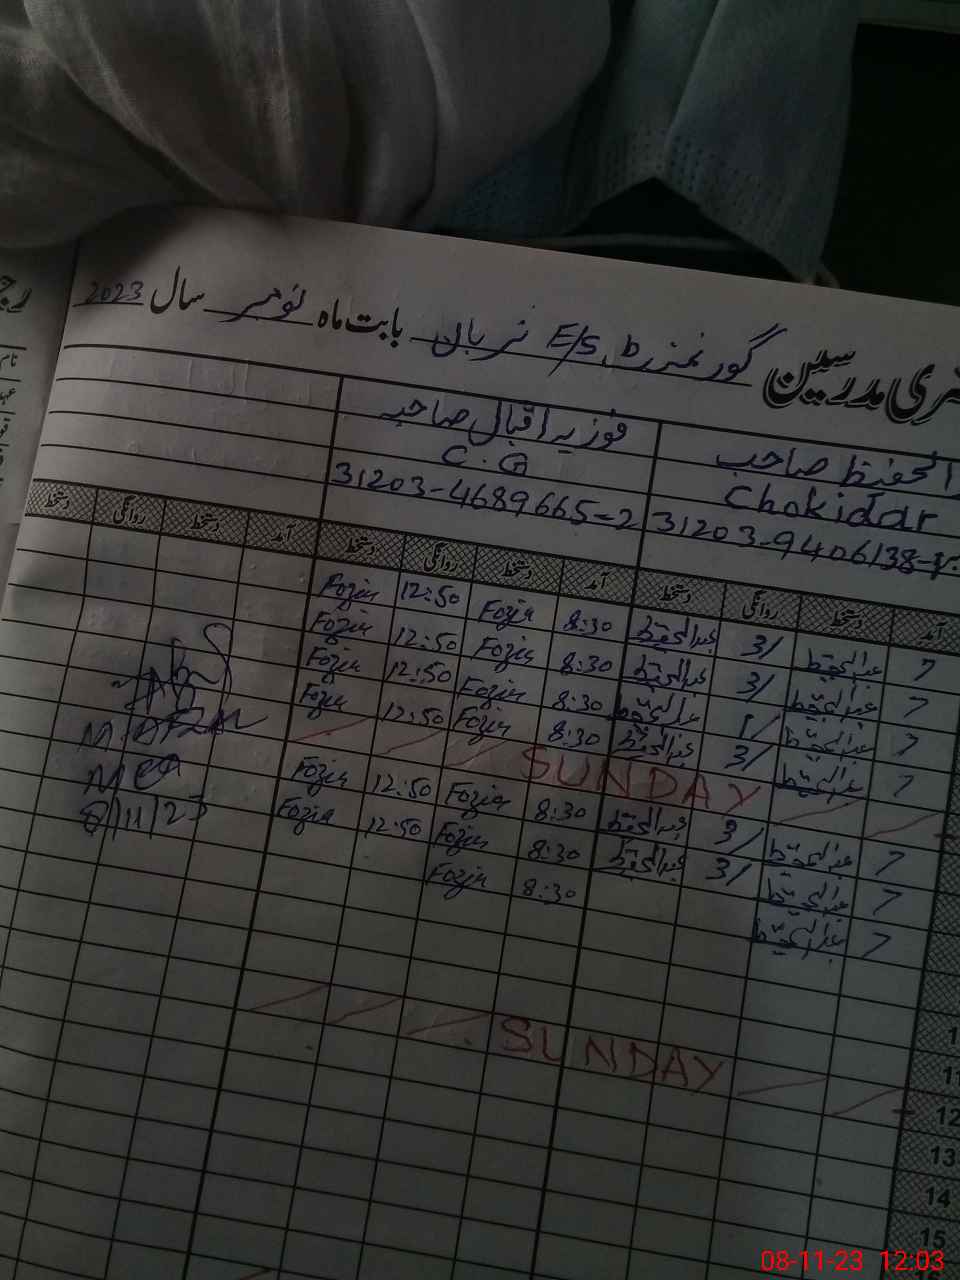 حاضری مدرسین گورنمنٹ E/S, b نربان بابت ماہ نومبر سال 2023
فوزیہ اقبال صاحبہ
الحفیظ صاحب
C.G
Chokidar
31203-4689665-2
31203-9406138-
آمد دستخط روانگی دستخط آمد دستخط روانگی دستخط آمد دستخط روانگی دستخط
7 عبدالحفیظ 3/ عبدالحفیظ 8:30 Fozia 12:50 Fozia
7 عبدالحفیظ 3/ عبدالحفیظ 8:30 Fozia 12:50 Fozia
7 عبدالحفیظ 1/ عبدالحفیظ 8:30 Fozia 12:50 Fozia
7 عبدالحفیظ 3/ عبدالحفیظ 8:30 Fozia 12:50 Fozia
SUNDAY
7 عبدالحفیظ 3/ عبدالحفیظ 8:30 Fozia 12:50 Fozia
7 عبدالحفیظ 3/ عبدالحفیظ 8:30 Fozia 12:50 Fozia
7 عبدالحفیظ 8:30 Fozia
MEA
8/11/23
SUNDAY
11
12
13
14
15
08-11-23 12:03